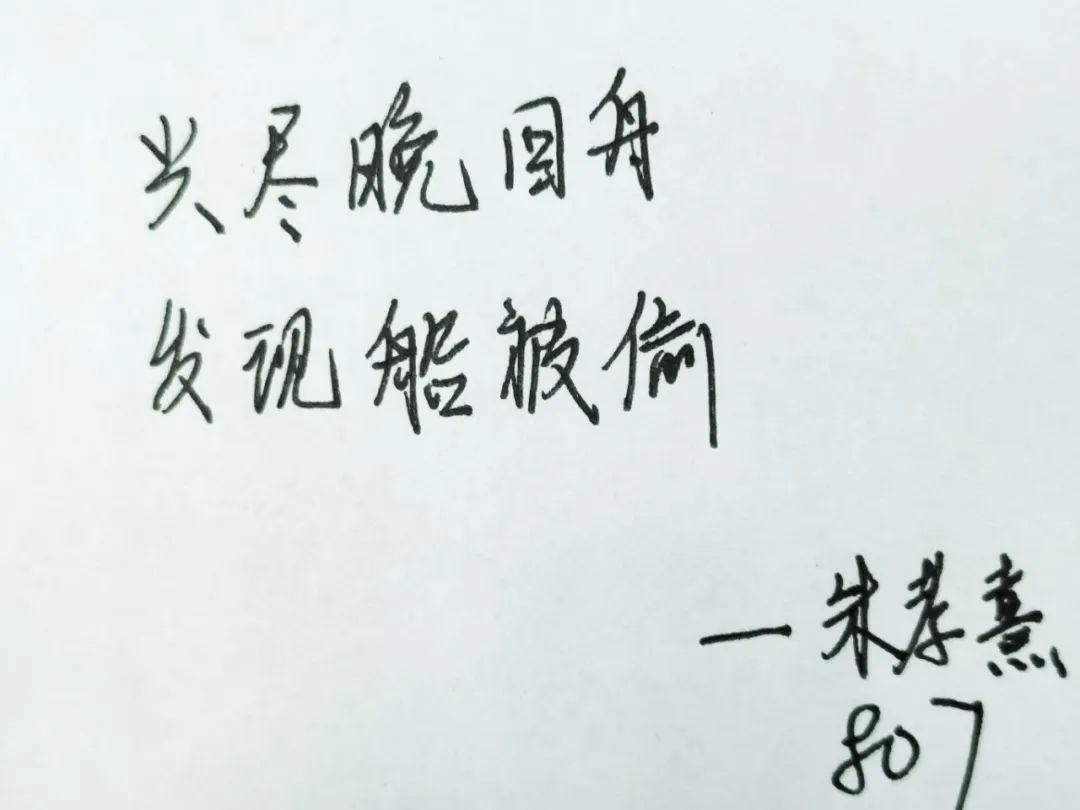 兴尽晚回舟
发现船被偷
—朱孝熹
807